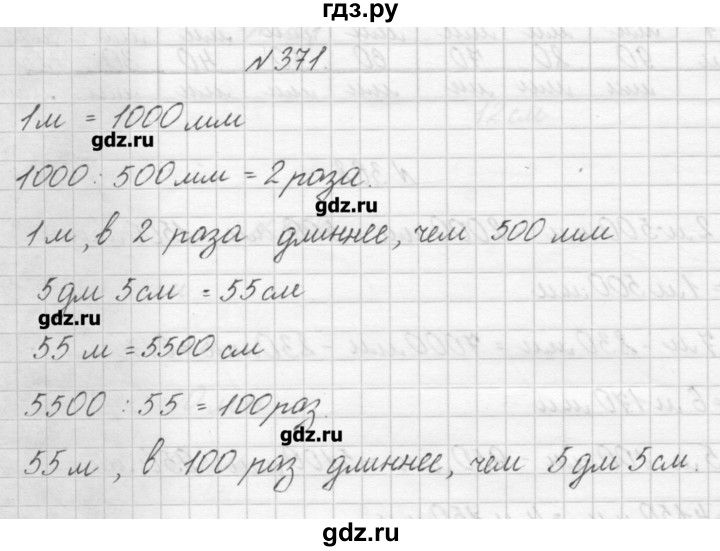 гдз.ру
№371.
1м = 1000мм
gdz.ru
1000 : 500мм = 2 раза.
gdz.ru
1м, в 2 раза длиннее, чем 500мм
5дм 5см = 55см
gdz.ru
55м = 5500см
5500 : 55 = 100раз.
gdz.ru
55м, в 100 раз длиннее, чем 5дм 5см.
gdz.ru